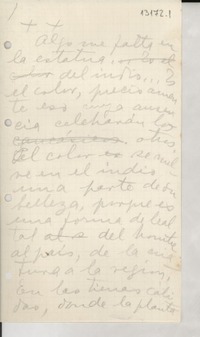 13172.1
+ +
Algo me falta en
la estatua,
color del indio... Es
el color, precisamen
te eso cuya ausen
cia celebrarán los
otros.
El color se vuel
ve en el indio
una parte de su
belleza, porque es
una forma de leal
tad del hombre
al país, de la cria
tura a la región,
en las tierras cáli
das, donde la planta